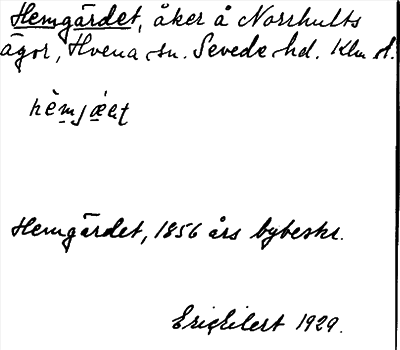 Hemgärdet, åker å Norrhults
ägor, Hvena sn. Sevede hd. Klm l.
Hemgärdet, 1856 års bybeskr.
Eric Eilert 1929.